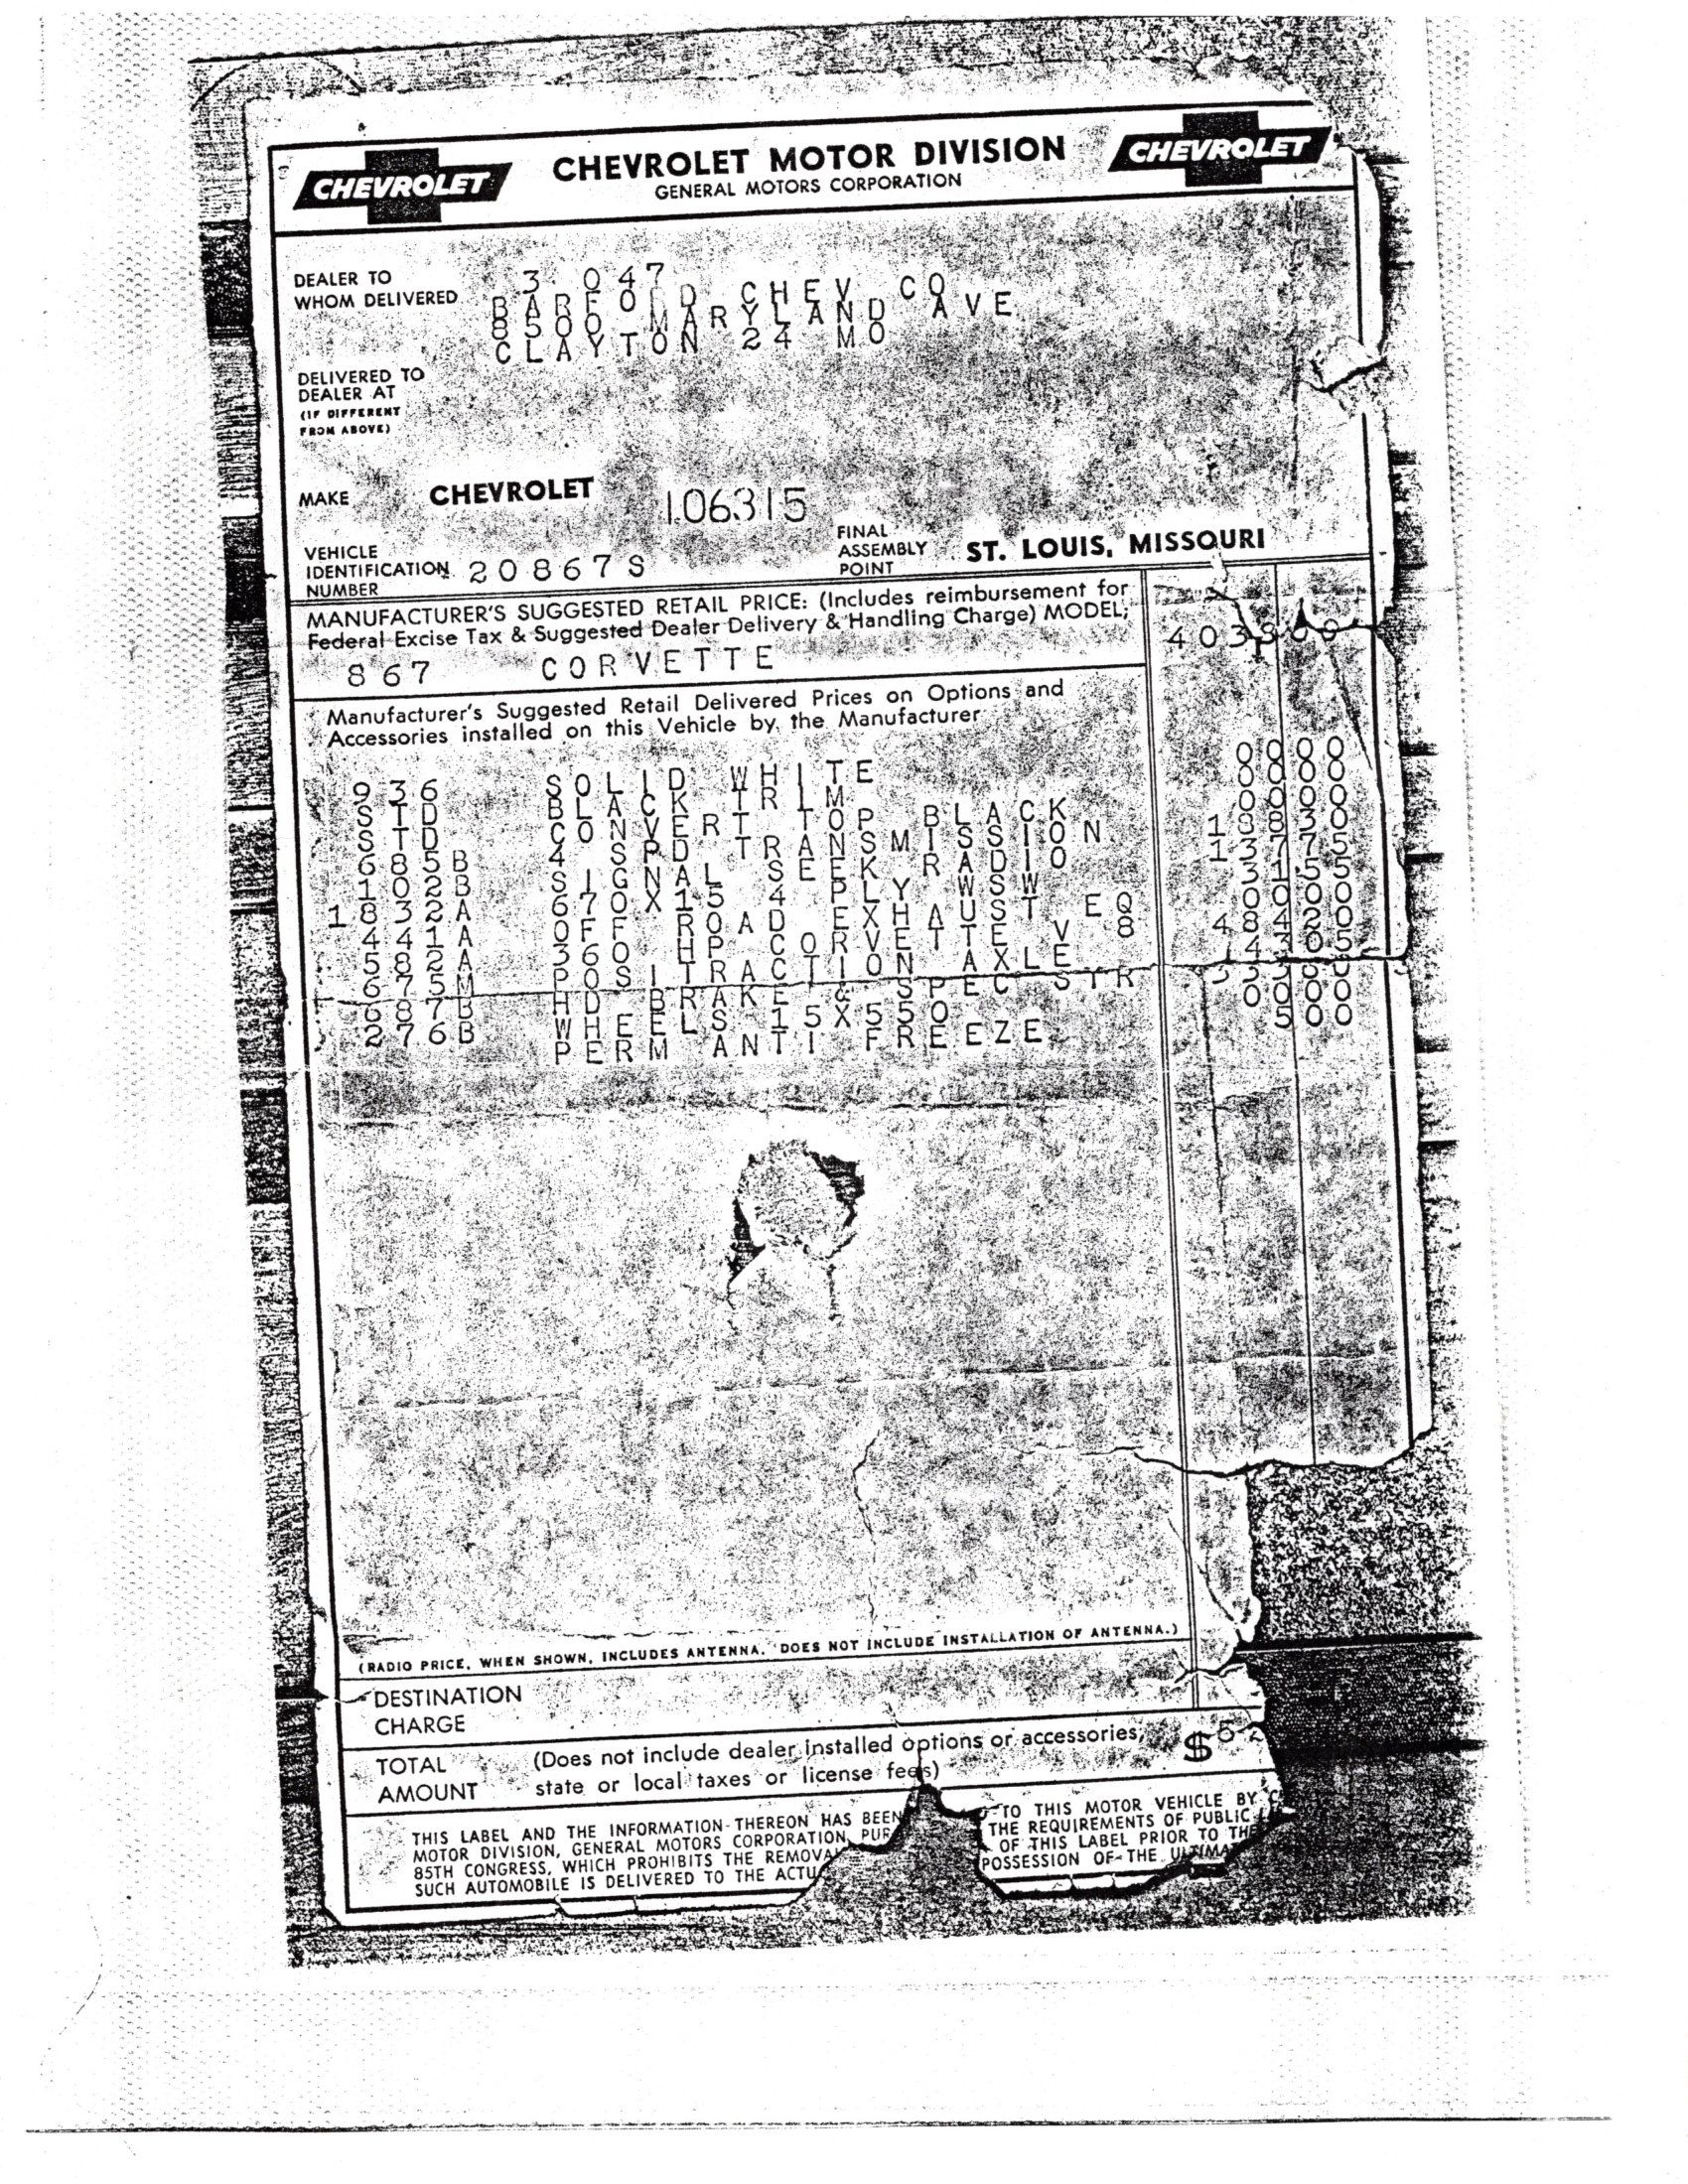 CHEVROLET
CHEVROLET MOTOR DIVISION
GENERAL MOTORS CORPORATION
CHEVROLET
DEALER TO
WHOM DELIVERED
3 047
BARFORD CHEV CO
8500 MARYLAND AVE
CLAYTON 24 MO
DELIVERED TO
DEALER AT
(IF DIFFERENT
FROM ABOVE)
MAKE CHEVROLET 106315
VEHICLE
IDENTIFICATION 20867S
NUMBER
FINAL
ASSEMBLY ST. LOUIS, MISSOURI
POINT
MANUFACTURER'S SUGGESTED RETAIL PRICE: (Includes reimbursement for
Federal Excise Tax & Suggested Dealer Delivery & Handling Charge) MODEL;
867 CORVETTE
Manufacturer's Suggested Retail Delivered Prices on Options and
Accessories installed on this Vehicle by the Manufacturer
936 SOLID WHITE 00 00
STD BLACK TRIM 00 00
STD CONVERT TOP BLACK
685B 4 SPD TRANSMISSION
102B SIGNAL SEEK RADIO
1832A 670X15 4 PLY WSW
441A OFF ROAD EXHAUST EQ
582A 360 HP CORVETTE V 8
675M POSITRACTION AXLE
687B HD BRAKE & SPEC STR
276B WHEELS 15X550
PERM ANTI FREEZE 5 00
(RADIO PRICE, WHEN SHOWN, INCLUDES ANTENNA. DOES NOT INCLUDE INSTALLATION OF ANTENNA.)
DESTINATION
CHARGE
TOTAL (Does not include dealer installed options or accessories,
AMOUNT state or local taxes or license fees)
$52
THIS LABEL AND THE INFORMATION THEREON HAS BEEN TO THIS MOTOR VEHICLE BY
MOTOR DIVISION, GENERAL MOTORS CORPORATION, PUR THE REQUIREMENTS OF PUBLIC
85TH CONGRESS, WHICH PROHIBITS THE REMOVA OF THIS LABEL PRIOR TO THE
SUCH AUTOMOBILE IS DELIVERED TO THE ACTU POSSESSION OF THE ULTIMA